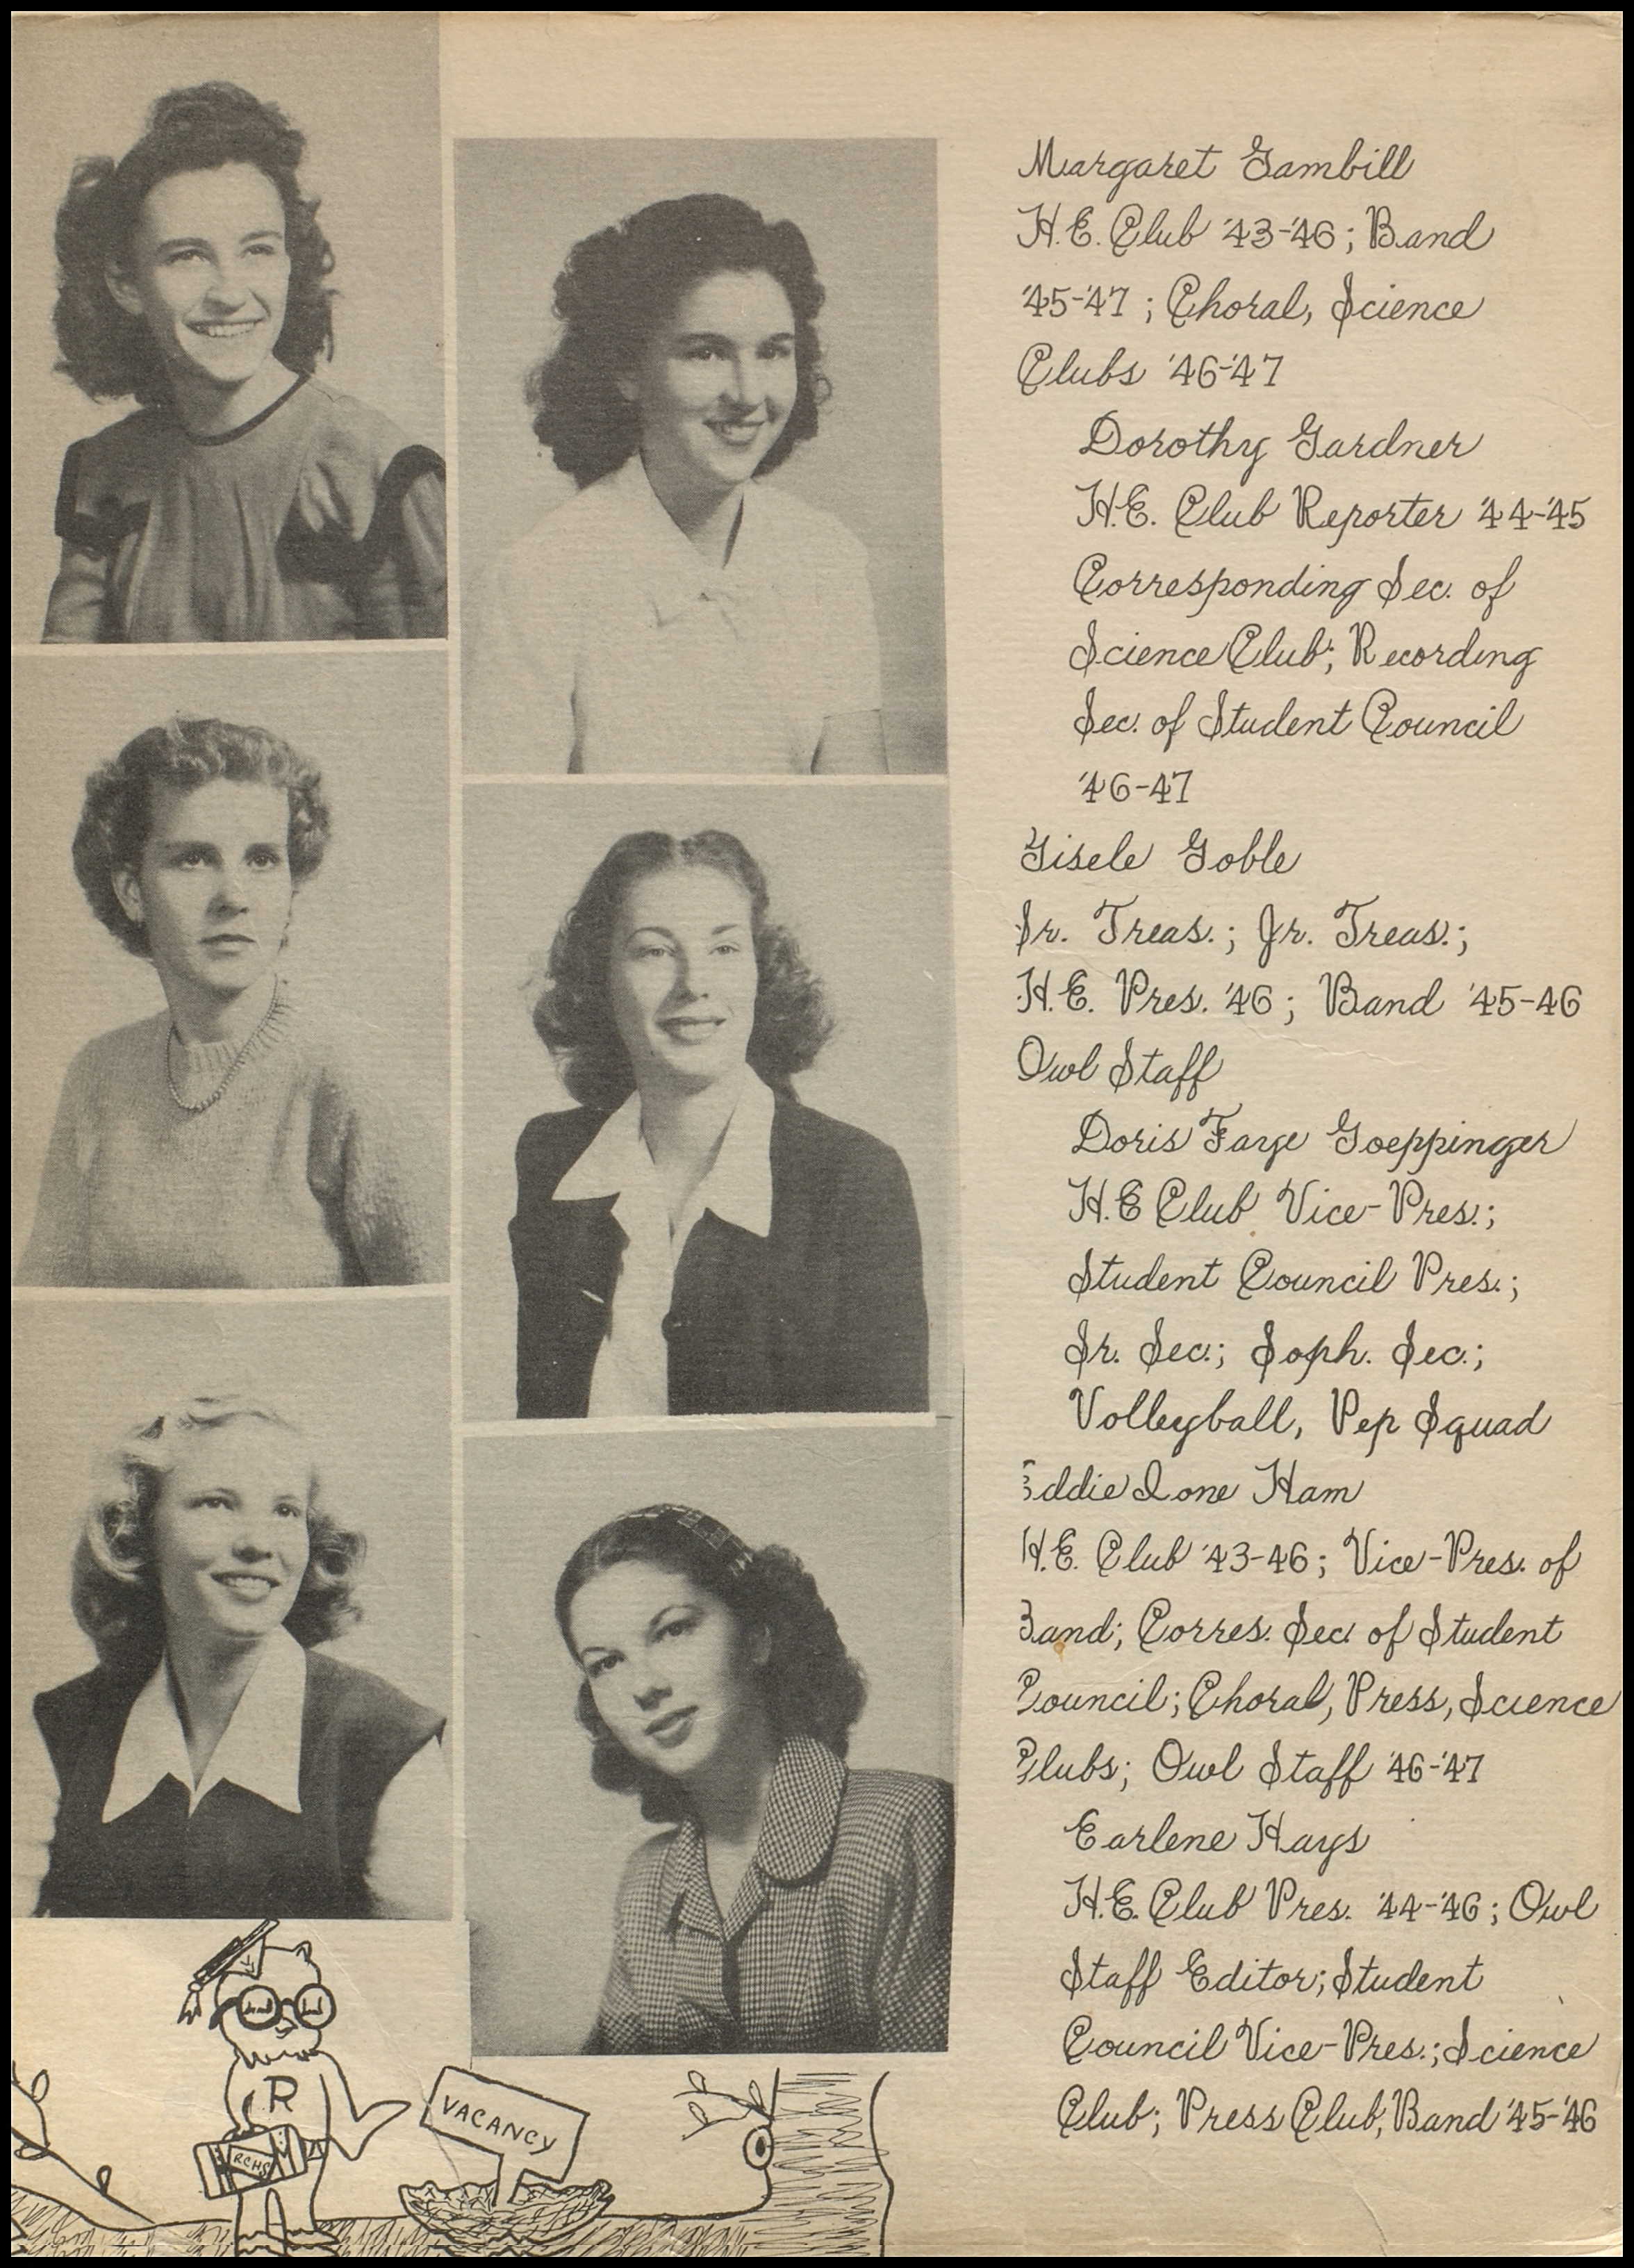 Margaret Gambill
H.E. Club '43-'46; Band
'45-'47; Choral, Science
Clubs '46-'47
Dorothy Gardner
H.E. Club Reporter '44-'45
Corresponding Sec. of
Science Club; Recording
Sec. of Student Council
'46-47
Gisele Goble
Sr. Treas.; Jr. Treas.;
H.E. Pres. '46; Band '45-46
Owl Staff
Doris Faye Goeppinger
H.E Club Vice-Pres.;
Student Council Pres.;
Sr. Sec.; Soph. Sec.;
Volleyball, Pep Squad
Eddie Ione Ham
H.E. Club '43-46; Vice-Pres. of
Band; Corres. Sec. of Student
Council; Choral, Press, Science
Clubs; Owl Staff '46-'47
Earlene Hays
H.E. Club Pres. '44-'46; Owl
Staff Editor; Student
Council Vice-Pres.; Science
Club; Press Club, Band '45-'46
R
RCHS
VACANCY